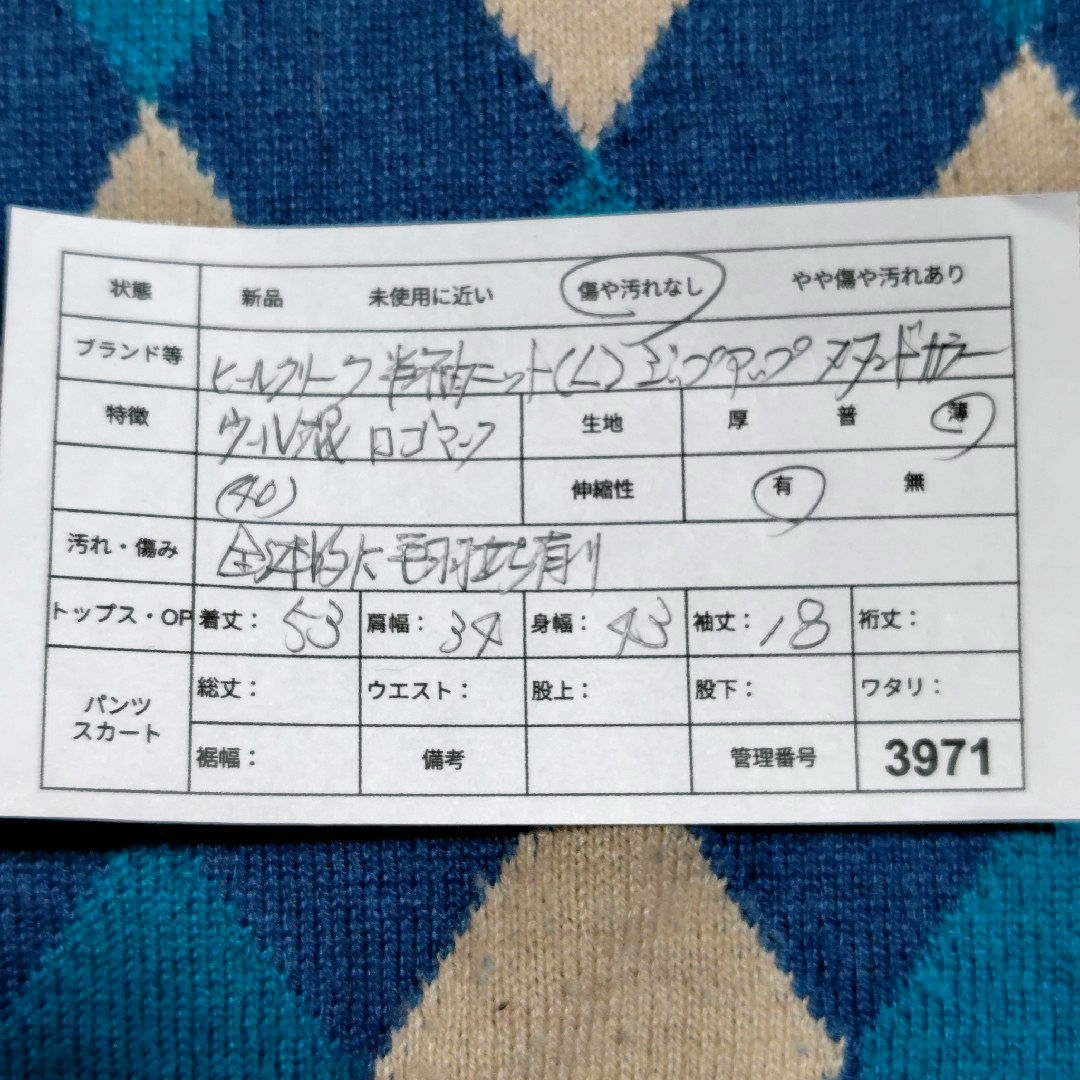 状態 新品 未使用に近い 傷や汚れなし やや傷や汚れあり
ブランド等 ヒールクリーク 半袖ニット(L) ジップアップ スタンドカラー
特徴 ウール混 ロゴマーク 生地 厚 普 薄
(40) 伸縮性 有 無
汚れ・傷み 全体的に毛羽立ち有り
トップス・OP 着丈: 53 肩幅: 34 身幅: 43 袖丈: 18 裄丈:
パンツ 総丈: ウエスト: 股上: 股下: ワタリ:
スカート
裾幅: 備考 管理番号 3971